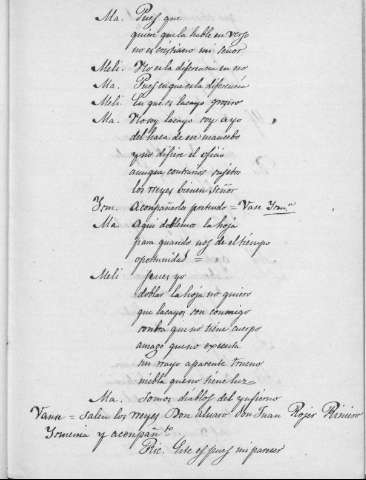 Ma. Pues que
quiere que la hable en verso
no es cristiano mi señor
Meli. No es la diferencia en eso
Ma. Pues en que es la diferencia
Meli. En que es lacayo
Ma. No soy lacayo soy ayo
del haca de un mancebo
y no difiere el oficio
aunque contrarios sujetos
los reyes vienen Señor
Ysm. Acompañarlos pretendo = Vase Ysm.ª
Ma. Aqui doblemos la hoja
para quando nos de el tiempo
oportunidad =
Meli Pues yo
doblar la hoja no quiero
que lacayos son conmigo
sombra que no tiene cuerpo
amago que no executa
un rayo aparente trueno
niebla que no tiene luz
Ma. Somos diablos del ynfierno
Vanse = salen los reyes Don Alvaro Don Juan Rojer
Ysmenia y acompañto
Ric. Este es pues mi parecer